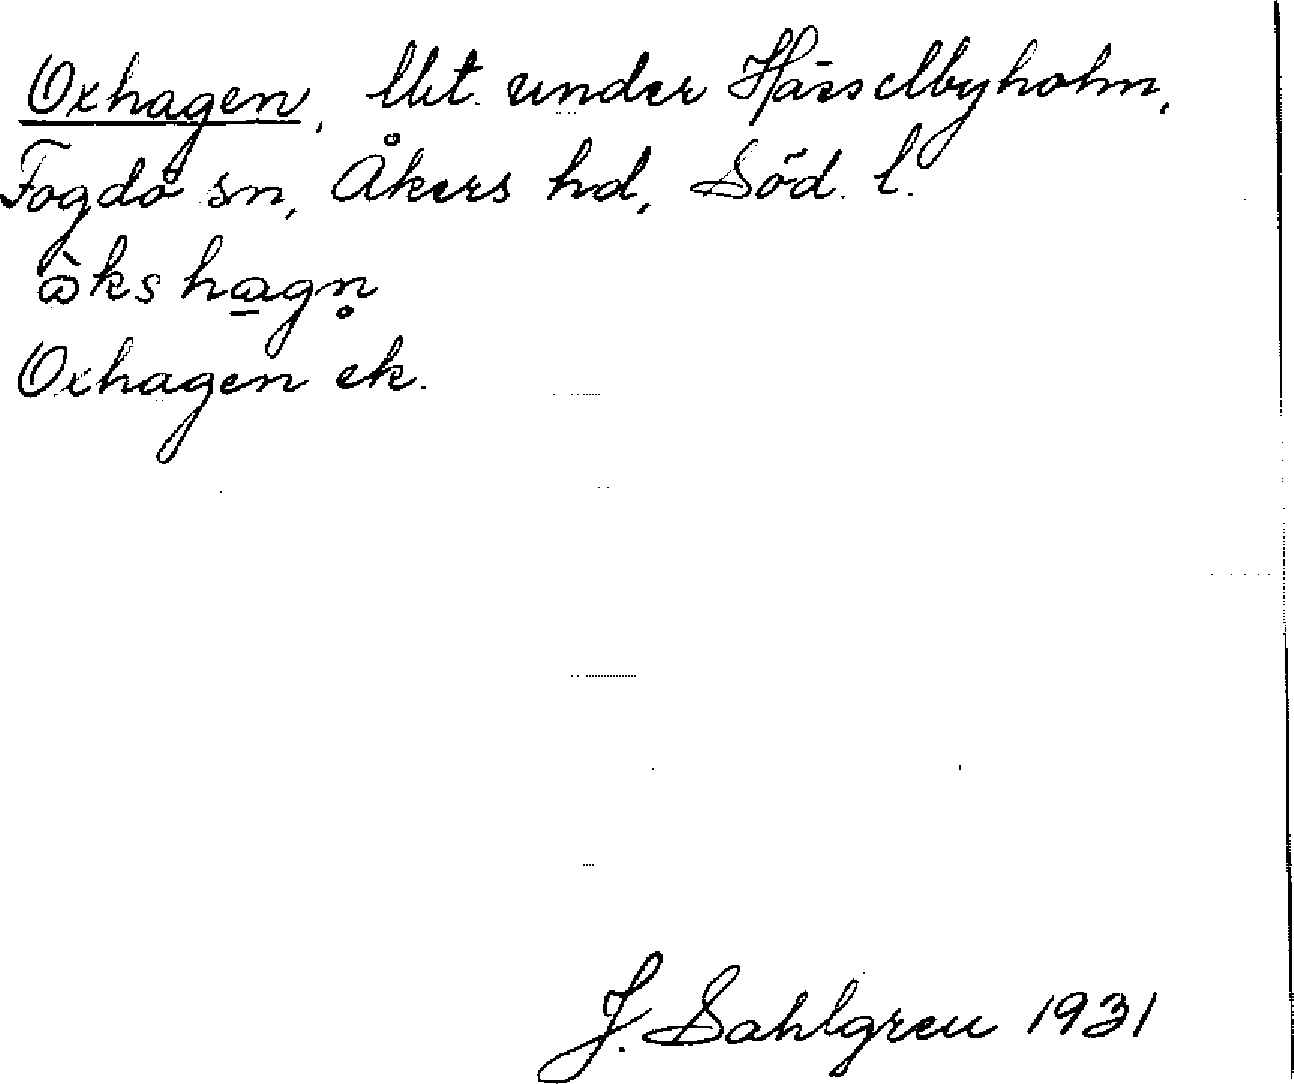 Oxhagen, lht. under Hässelbyholm,
Fogdö sn, Åkers hd, Söd. l.
ὼks ha̲gn̥
Oxhagen ek.
J. Sahlgren 1931